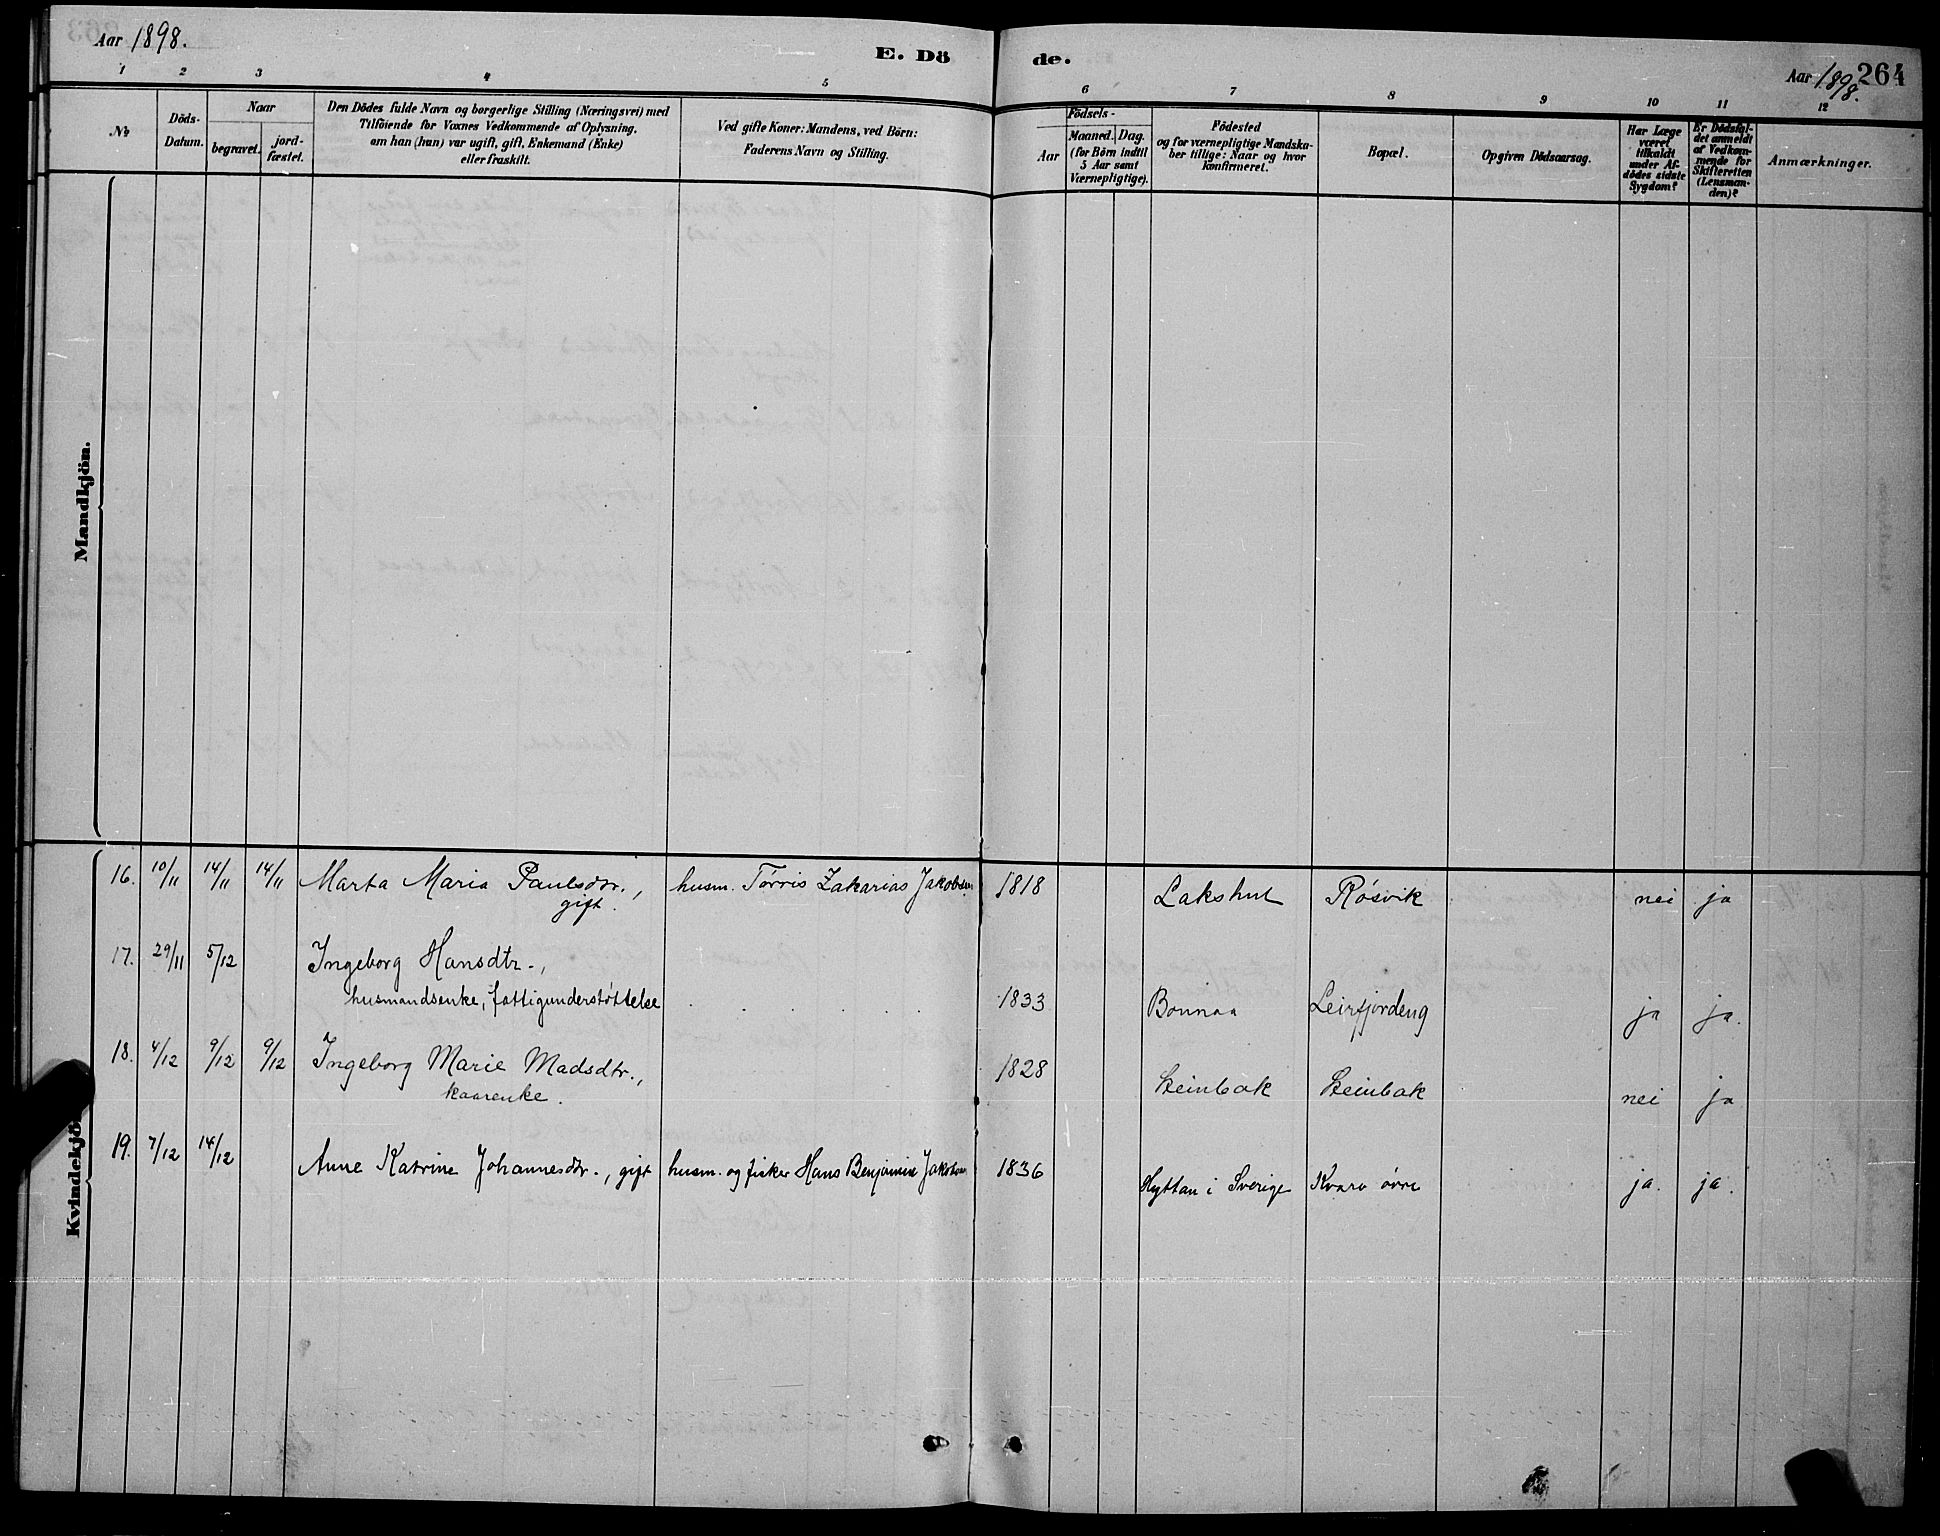 Aar 1898.
E. Dö
de.
Aar 1898.
264
1 2 3 4 5
6 7 8 9 10 11 12
No
Döds-
Datum.
Naar
begravet.
jord-
fæstet.
Den Dödes fulde Navn og borgerlige Stilling (Næringsvei) med
Tilföiende for Voxnes Vedkommende af Oplysning,
om han (hun) var ugift, gift, Enkemand (Enke)
eller fraskilt.
Ved gifte Koner: Mandens, ved Börn:
Faderens Navn og Stilling.
Födsels-
Aar
Maaned.
Dag.
(for Börn indtil
5 Aar samt
Værnepligtige).
Födested
og for værnepligtige Mandska-
ber tillige: Naar og hvor
konfirmeret.
Bopæl.
Opgiven Dödsaarsag.
Har Læge
været
tilkaldt
under Af-
dödes sidste
Sygdom?
Er Dödsfal-
det anmeldt
af Vedkom-
mende for
Skifteretten
(Lensman-
den)?
Anmærkninger.
Mandkjön.
Kvindekjö
16. 10/11 14/11 14/11 Marta Maria Paulsdtr., husm. Tørris Zakarias Jakobsen 1818 Lakshul Røsvik nei ja
gift.
17. 29/11 5/12 Ingeborg Hansdtr.,
husmandsenke, fattigunderstøttelse 1833 Bonnaa Leirfjordeng ja ja.
18. 4/12 9/12 9/12 Ingeborg Marie Madsdtr., 1828 Steinbak Steinbak nei ja
kaarenke.
19. 7/12 14/12 Anne Katrine Johannesdtr., gift husm. og fisker Hans Benjamin Jakobsen 1836 Hyttan i Sverige Kvarv øvre ja. ja.